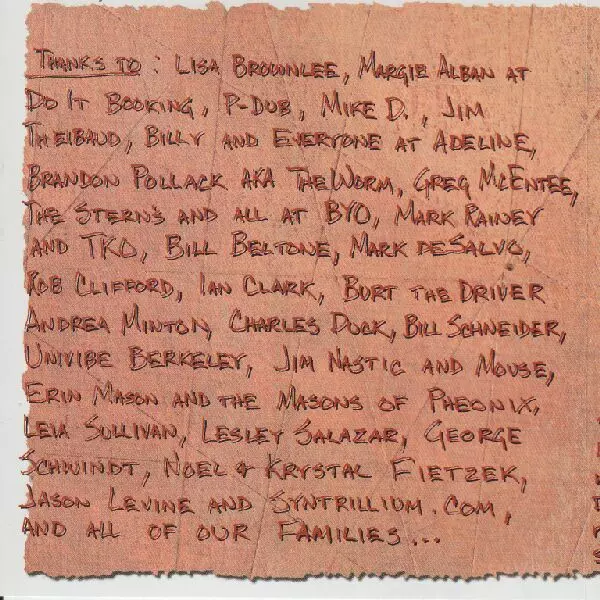 THANKS TO : LISA BROWNLEE, MARGIE ALBAN AT
DO IT BOOKING, P-DUB, MIKE D., JIM
THEIBAUD, BILLY AND EVERYONE AT ADELINE,
BRANDON POLLACK AKA THEWORM, GREG McENTEE,
THE STERN'S AND ALL AT BYO, MARK RAINEY
AND TKO, BILL BELTONE, MARK DESALVO,
ROB CLIFFORD, IAN CLARK, BURT THE DRIVER
ANDREA MINTON, CHARLES DOCK, BILL SCHNEIDER,
UNIVIBE BERKELEY, JIM NASTIC AND MOUSE,
ERIN MASON AND THE MASONS OF PHEONIX,
LEIA SULLIVAN, LESLEY SALAZAR, GEORGE
SCHWINDT, NOEL & KRYSTAL FIETZEK,
JASON LEVINE AND SYNTRILLIUM.COM,
AND ALL OF OUR FAMILIES...